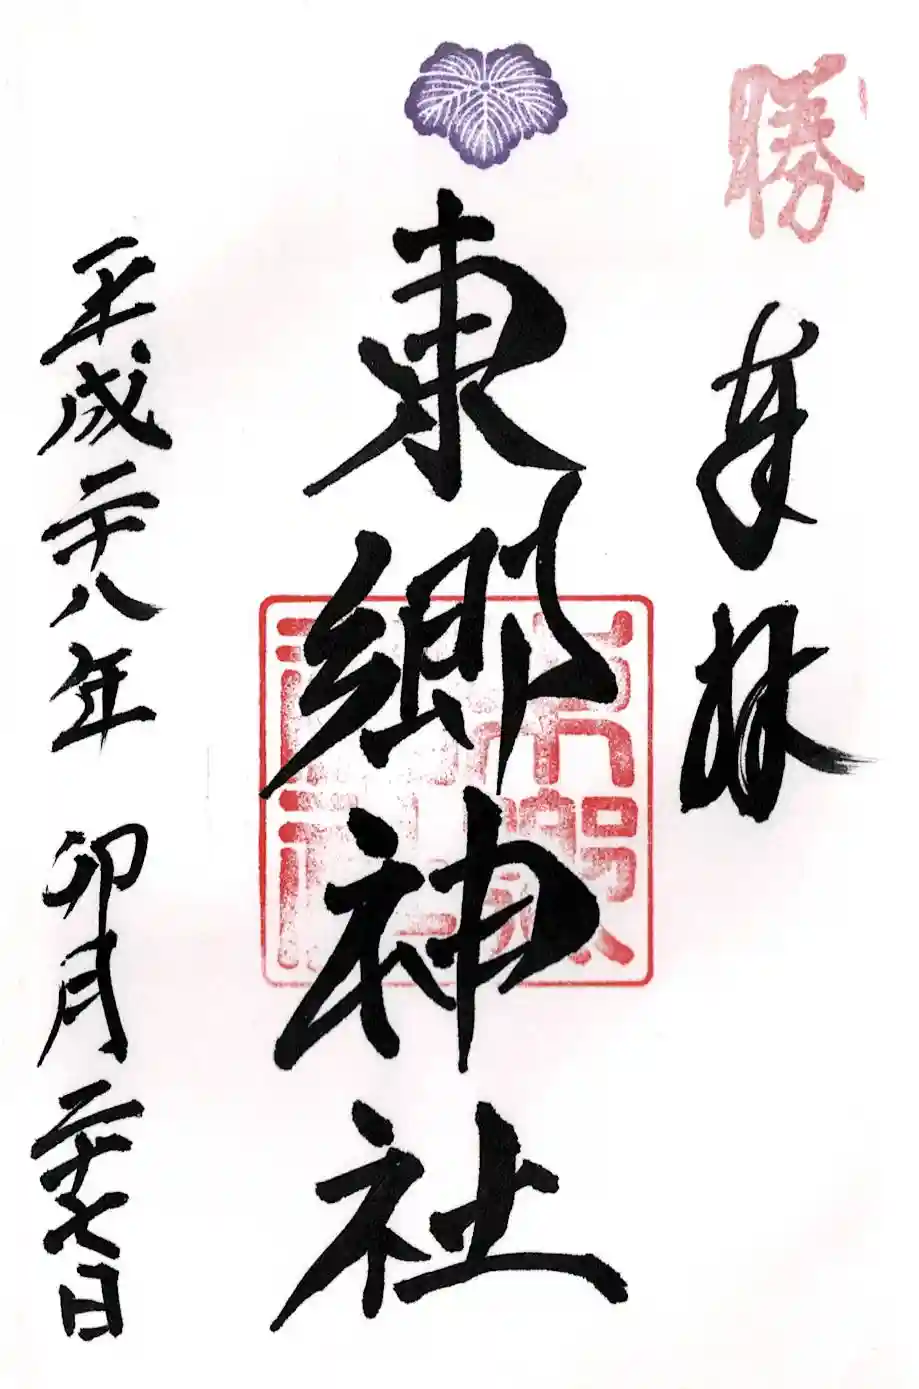 勝
奉拝
東郷神社
東郷神社
平成二十八年 卯月二十七日